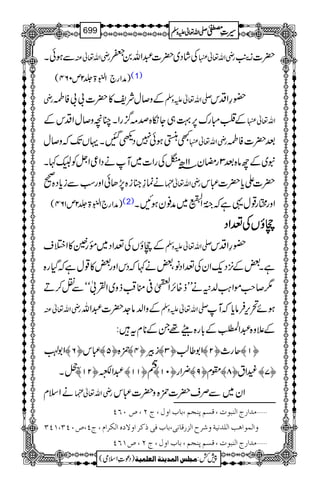 سیرتِ مصطفیٰ صلی اللہ تعالیٰ علیہ وسلم 699
حضرت زینب رضی اللہ تعالیٰ عنہا کی شادی حضرت عبداللہ بن جعفر رضی اللہ تعالیٰ عنہ سے ہوئی۔
(1)(مدارج النبوۃ جلد۲ ص۴۶۰)
حضور اقدس صلی اللہ تعالیٰ علیہ وسلم کے وصال شریف کا حضرت بی بی فاطمہ رضی
اللہ تعالیٰ عنہا کے قلب مبارک پر بہت ہی جانکاہ صدمہ گزرا۔ چنانچہ وصال اقدس کے
بعد حضرت فاطمہ رضی اللہ تعالیٰ عنہا کبھی ہنستی ہوئی نہیں دیکھی گئیں۔ یہاں تک کہ وصال
نبوی کے چھ ماہ بعد ۳ رمضان ۱۱ھ منگل کی رات میں آپ نے داعی اجل کو لبیک کہا۔
حضرت علی یا حضرت عباس رضی اللہ تعالیٰ عنہما نے نماز جنازہ پڑھائی اور سب سے زیادہ صحیح
اور مختار قول یہی ہے کہ جنۃ البقیع میں مدفون ہوئیں۔ (2)(مدارج النبوۃ جلد۲ ص۴۶۱)
چچاؤں کی تعداد
حضور اقدس صلی اللہ تعالیٰ علیہ وسلم کے چچاؤں کی تعداد میں مؤرخین کا اختلاف
ہے۔ بعض کے نزدیک ان کی تعداد نو، بعض نے کہا کہ دس اور بعض کا قول ہے کہ گیارہ
مگر صاحب مواہب لدنیہ نے ’’ذخائر العقبیٰ فی مناقب ذوی القربیٰ‘‘ سے نقل کرتے
ہوئے تحریر فرمایا کہ آپ صلی اللہ تعالیٰ علیہ وسلم کے والد ماجد حضرت عبداللہ رضی اللہ تعالیٰ عنہ
کے علاوہ عبدالمطلب کے بارہ بیٹے تھے جن کے نام یہ ہیں:
﴿۱﴾حارث﴿۲﴾ابوطالب﴿۳﴾زبیر﴿۴﴾حمزہ﴿۵﴾عباس﴿۶﴾ابولہب
﴿۷﴾غیداق﴿۸﴾مقوم﴿۹﴾ضرار﴿۱۰﴾قثم﴿۱۱﴾عبدالکعبہ﴿۱۲﴾جحل۔
ان میں سے صرف حضرت حمزہ و حضرت عباس رضی اللہ تعالیٰ عنہما نے اسلام
......مدارج النبوت ، قسم پنجم ،باب اول ، ج ۲ ، ص ۴۶۰
والمواھب اللدنیة وشرح الزرقانی،باب فی ذکر اولادہ الکرام ، ج۴،ص۳۴۰،۳۴۱
......مدارج النبوت ، قسم پنجم ، باب اول ، ج ۲ ، ص۴۶۱
پیش کش: مجلس المدینة العلمیة (دعوتِ اسلامی)